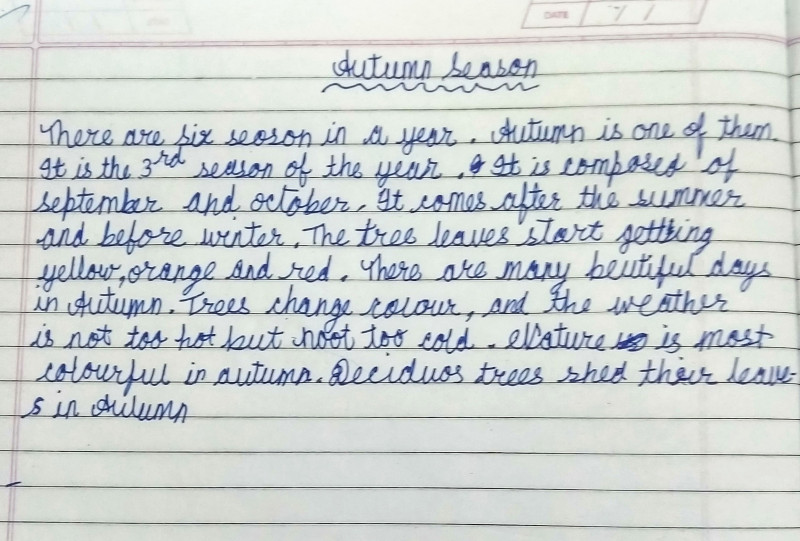 DATE
Autumn Season
There are six seoson in a year. Autumn is one of them.
It is the 3rd season of the year. It is composed of
september and october. It comes after the summer
and before winter. The tree leaves start getting
yellow, orange and red. There are many beutiful days
in Autumn. Trees change colour, and the weather
is not too hot but noot too cold. Nature is most
colourful in autumn. Deciduos trees shed their leave-
s in Autumn